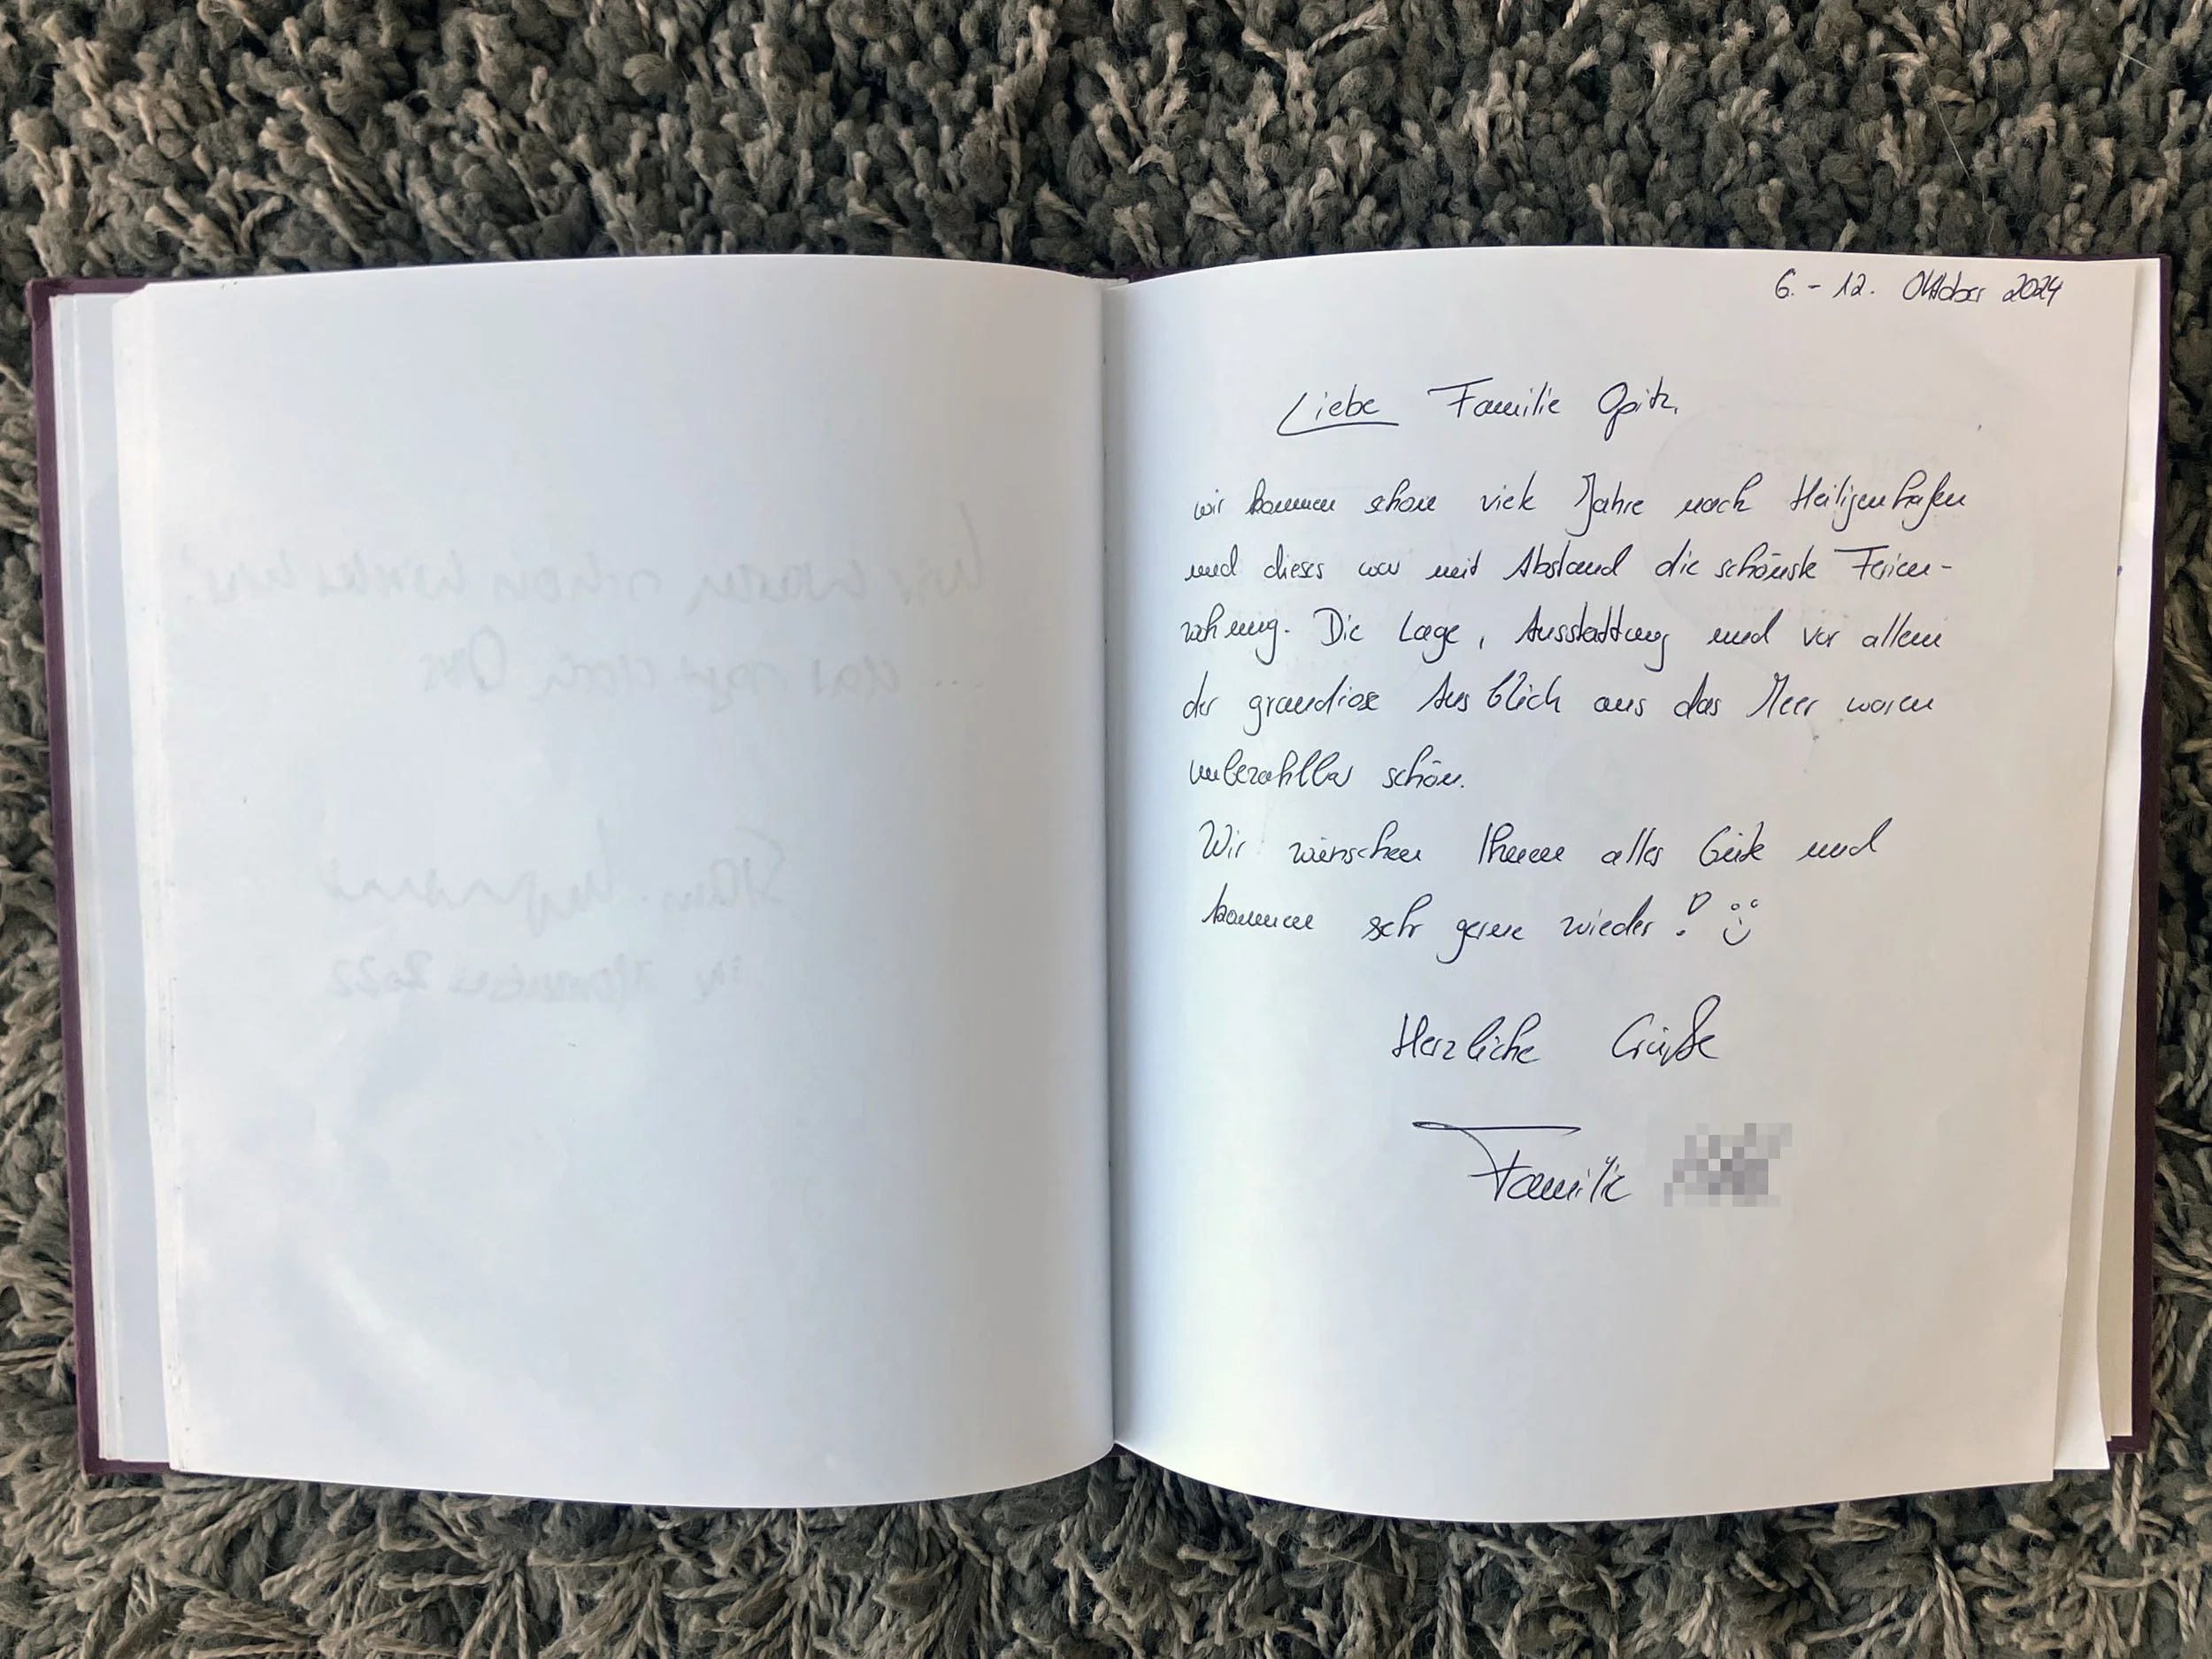 6. - 12. Oktober 2024
Liebe Familie Opitz,
wir kommen schon viele Jahre nach Heiligenhafen
und dieses war mit Abstand die schönste Ferien-
wohnung. Die Lage, Ausstattung und vor allem
der grandiose Ausblick aus das Meer waren
unbezahlbar schön.
Wir wünschen Ihnen alles Gute und
kommen sehr gerne wieder!
Herzliche Grüße
Familie